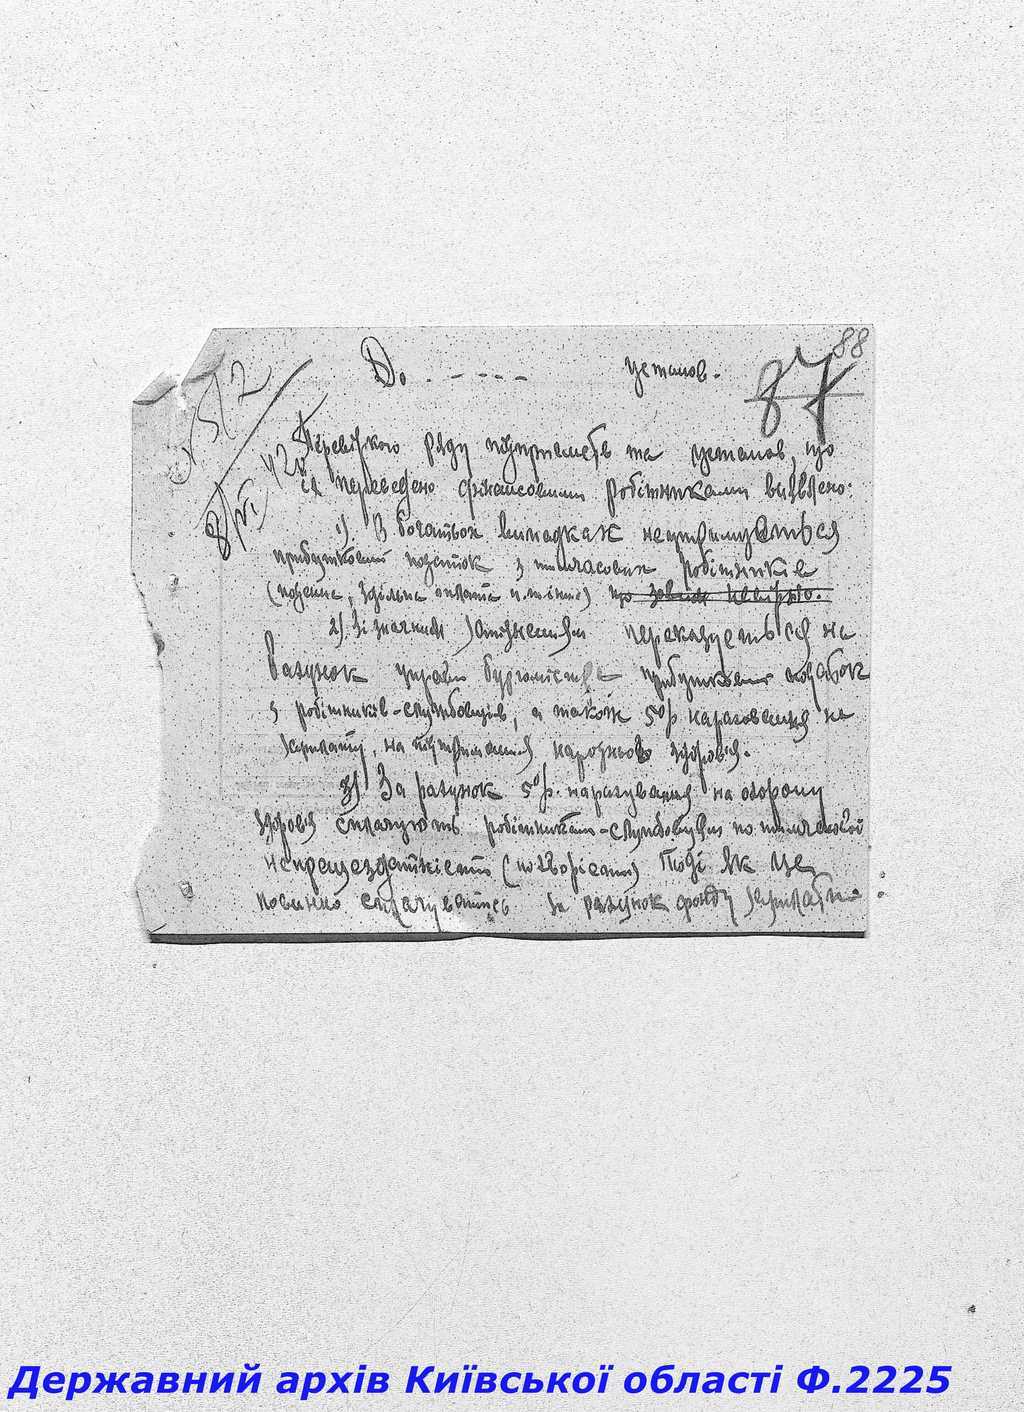 88
До . - - - - установ.
87
Перевіркою ряду підприємств та установ, що
є переведено фінансовими робітниками виявлено:
1) В богатьох випадках неутримується
прибутковий податок з тимчасових робітників
(поденна, здільна оплата и т. інше) що зовсім невірно.
2) Зі значним запізненням переказується на
рахунок управи бургомістра прибутковий податок
з робітників-службовців, а також 5% нараховання на
зарплату, на підтримання народнього здоров'я.
3) За рахунок 5% нарахування на охорону
здоровія сплачують робітникам-службовцям по тимчасовій
непрацездатністі (по хворісти) тоді як це
повинно сплачуватись за рахунок фонду зарплатні
Державний архів Київської області Ф.2225